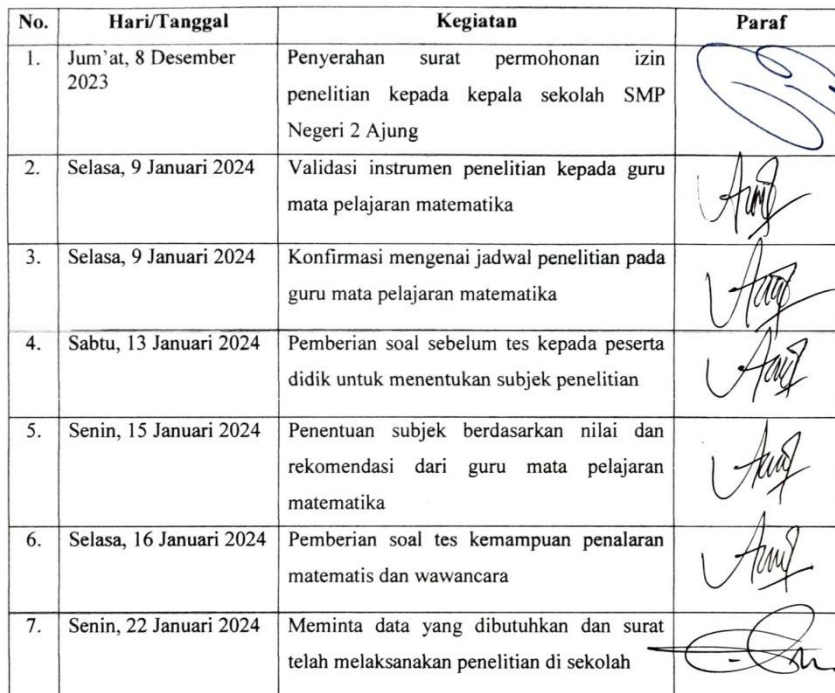 No. Hari/Tanggal Kegiatan Paraf
1. Jum'at, 8 Desember Penyerahan surat permohonan izin
2023 penelitian kepada kepala sekolah SMP
Negeri 2 Ajung
2. Selasa, 9 Januari 2024 Validasi instrumen penelitian kepada guru
mata pelajaran matematika
3. Selasa, 9 Januari 2024 Konfirmasi mengenai jadwal penelitian pada
guru mata pelajaran matematika
4. Sabtu, 13 Januari 2024 Pemberian soal sebelum tes kepada peserta
didik untuk menentukan subjek penelitian
5. Senin, 15 Januari 2024 Penentuan subjek berdasarkan nilai dan
rekomendasi dari guru mata pelajaran
matematika
6. Selasa, 16 Januari 2024 Pemberian soal tes kemampuan penalaran
matematis dan wawancara
7. Senin, 22 Januari 2024 Meminta data yang dibutuhkan dan surat
telah melaksanakan penelitian di sekolah